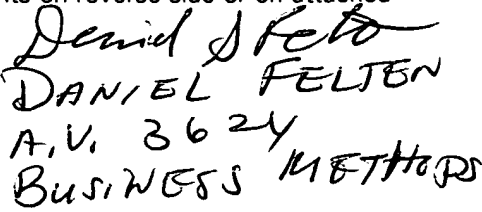 its on reverse side or on attached
Daniel S Felten
DANIEL FELTEN
A.V. 3624
BUSINESS METHODS